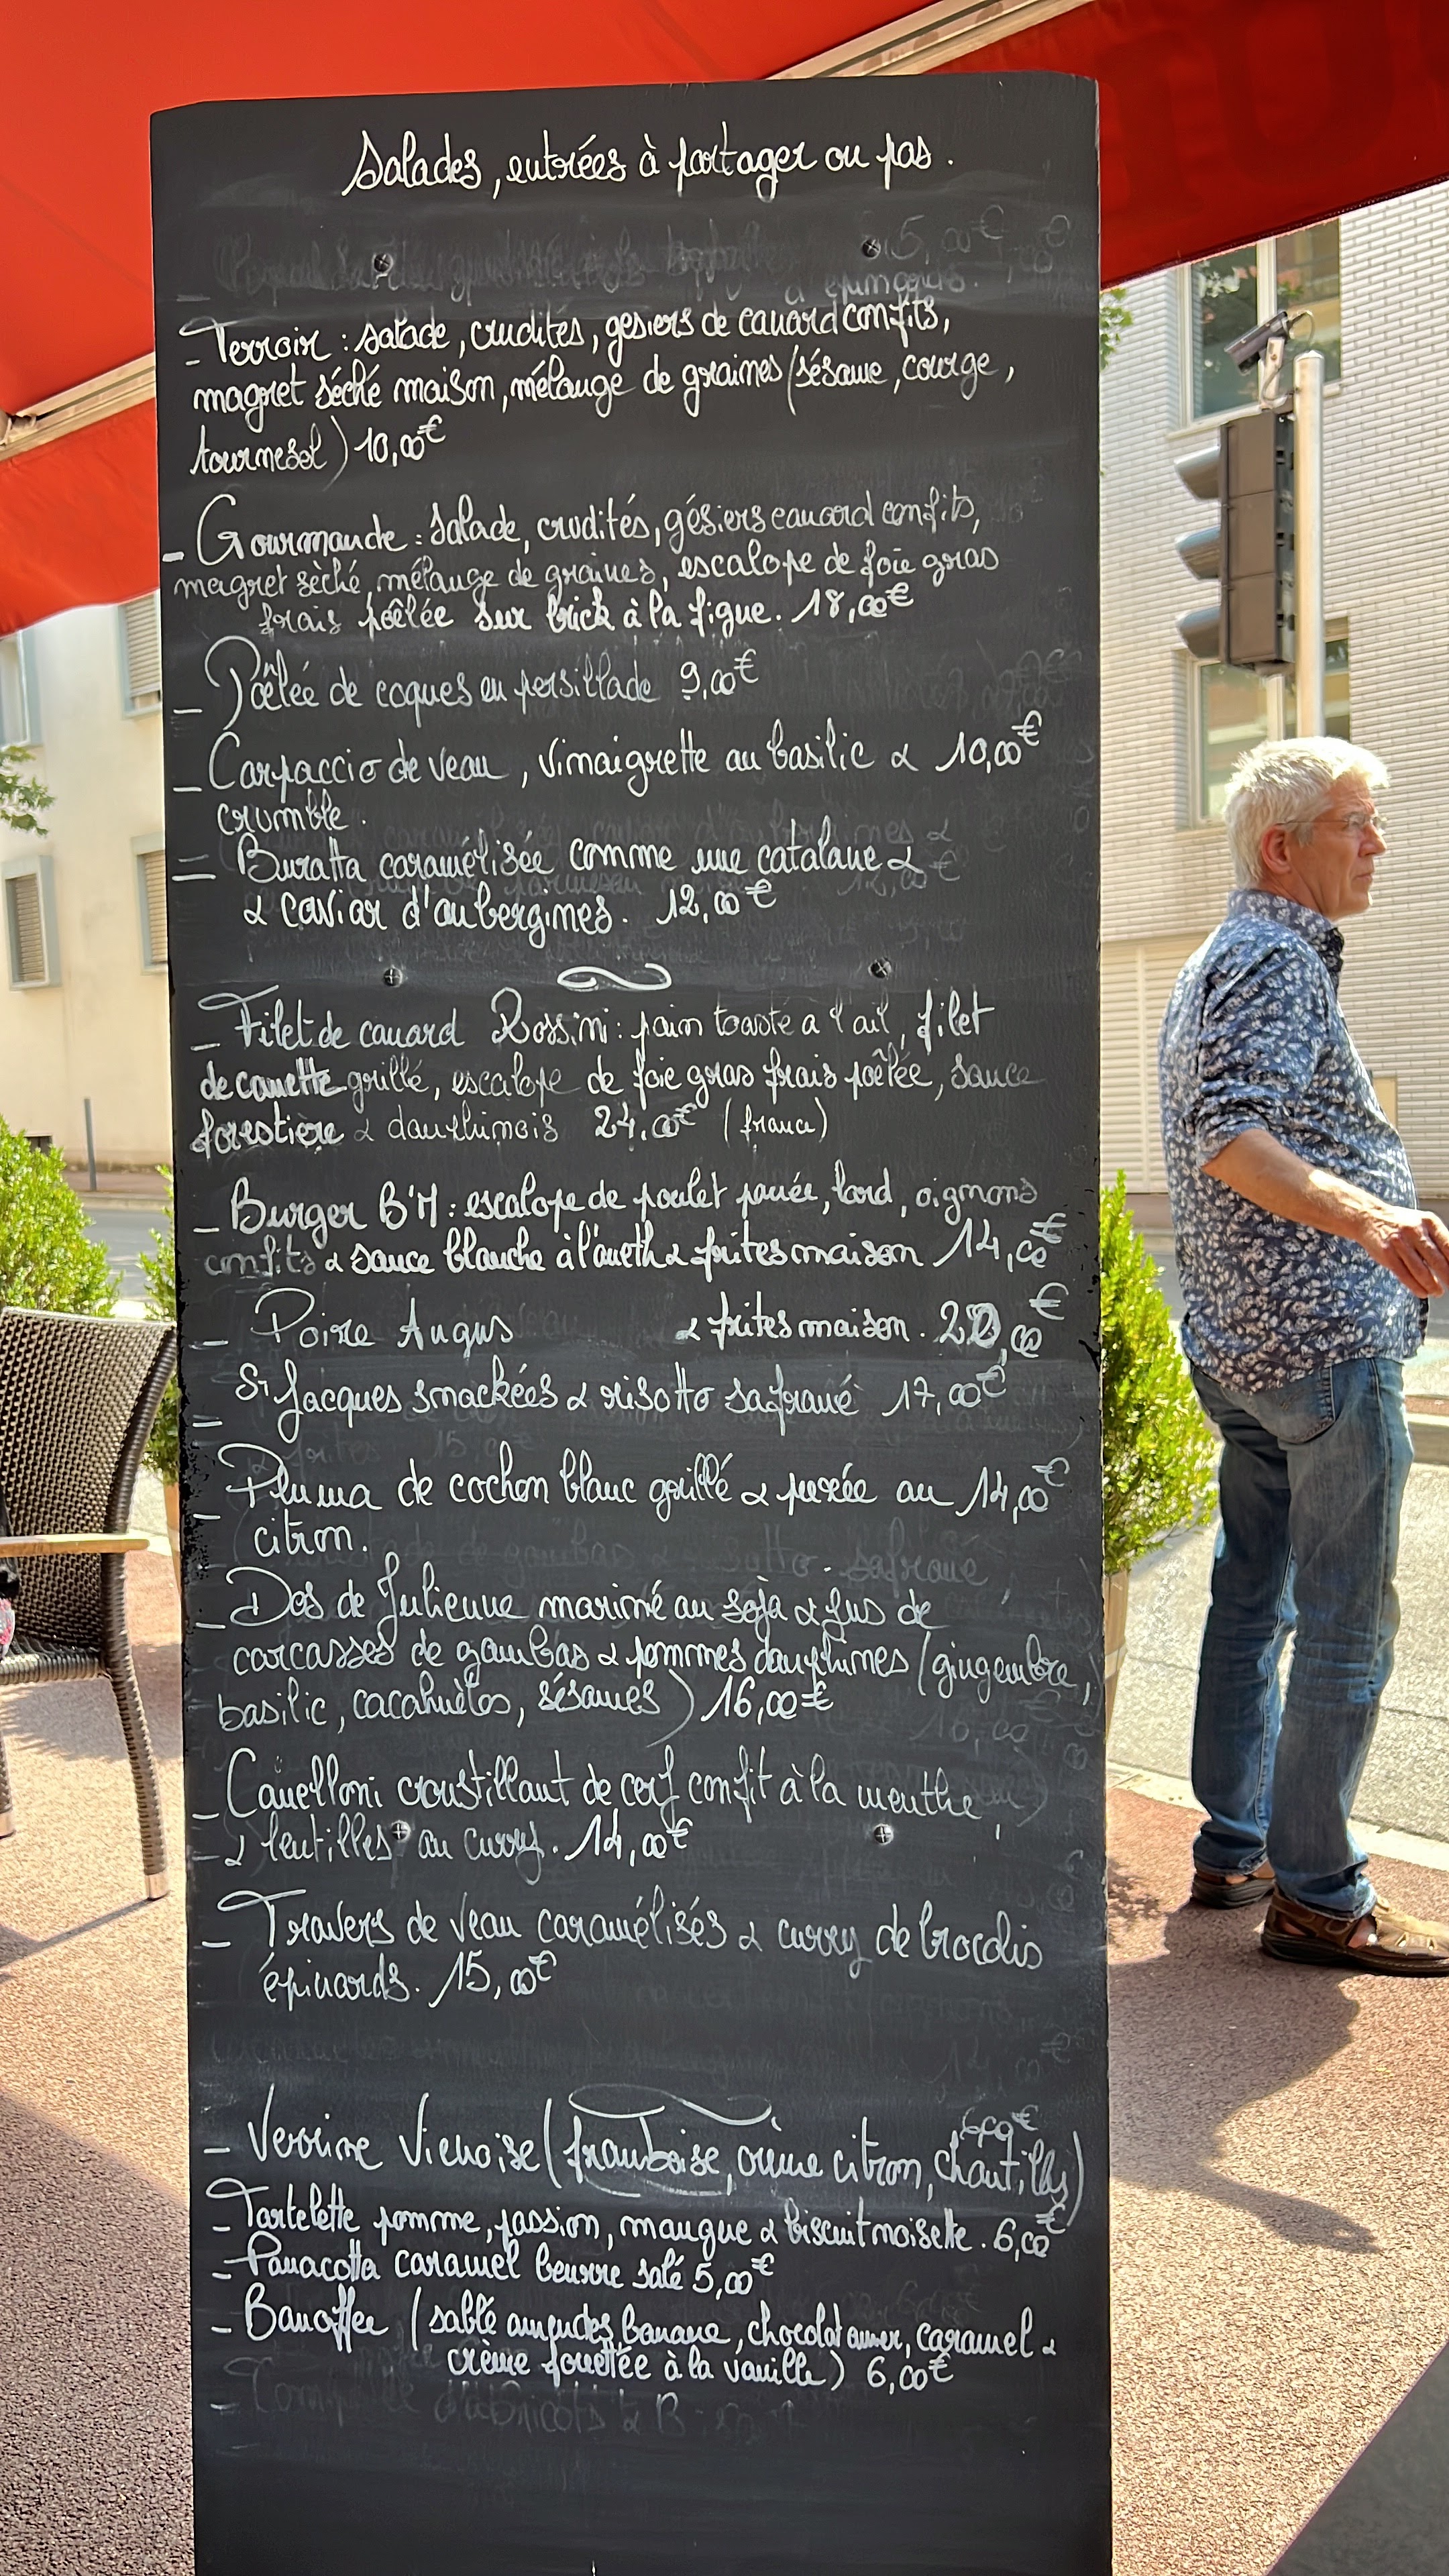 Salades, entrées à partager ou pas.
5,00€
- Terroir : salade, crudités, gésiers de canard confits,
magret séché maison, mélange de graines (sésame, courge,
tournesol) 10,00€
- Gourmande : salade, crudités, gésiers canard confits,
magret sèché, mélange de graines, escalope de foie gras
frais poêlée sur brick à la figue. 18,00€
- Poêlée de coques en persillade 9,00€
- Carpaccio de veau, vinaigrette au basilic & 10,00€
crumble.
= Buratta caramélisée comme une catalane &
& caviar d'aubergines. 12,00€
- Filet de canard Rossini : pain toasté a l'ail, filet
de canette grillé, escalope de foie gras frais poêlée, sauce
forestière & dauphinois 24,00€ (france)
- Burger B'M : escalope de poulet panée, lard, oignons
confits & sauce blanche à l'aneth & frites maison 14,00€
- Poire Angus & frites maison. 20,00€
= St Jacques snackées & risotto safrané 17,00€
- Pluma de cochon blanc grillé & purée au 14,00€
citron.
- Dos de Julienne mariné au soja & jus de
carcasses de gambas & pommes dauphines (gingembre,
basilic, cacahuètes, sésames) 16,00€
- Canelloni croustillant de cerf confit à la menthe
- & lentilles au curry. 14,00€
- Travers de veau caramélisés & curry de brocolis
épinards. 15,00€
6,00€
- Verrine Vienoise (framboise, crème citron, chantilly)
- Tartelette pomme, passion, mangue & biscuit noisette. 6,00€
- Panacotta caramel beurre salé 5,00€
- Banoffee (sablé amandes, banane, chocolat amer, caramel &
crème fouettée à la vanille) 6,00€